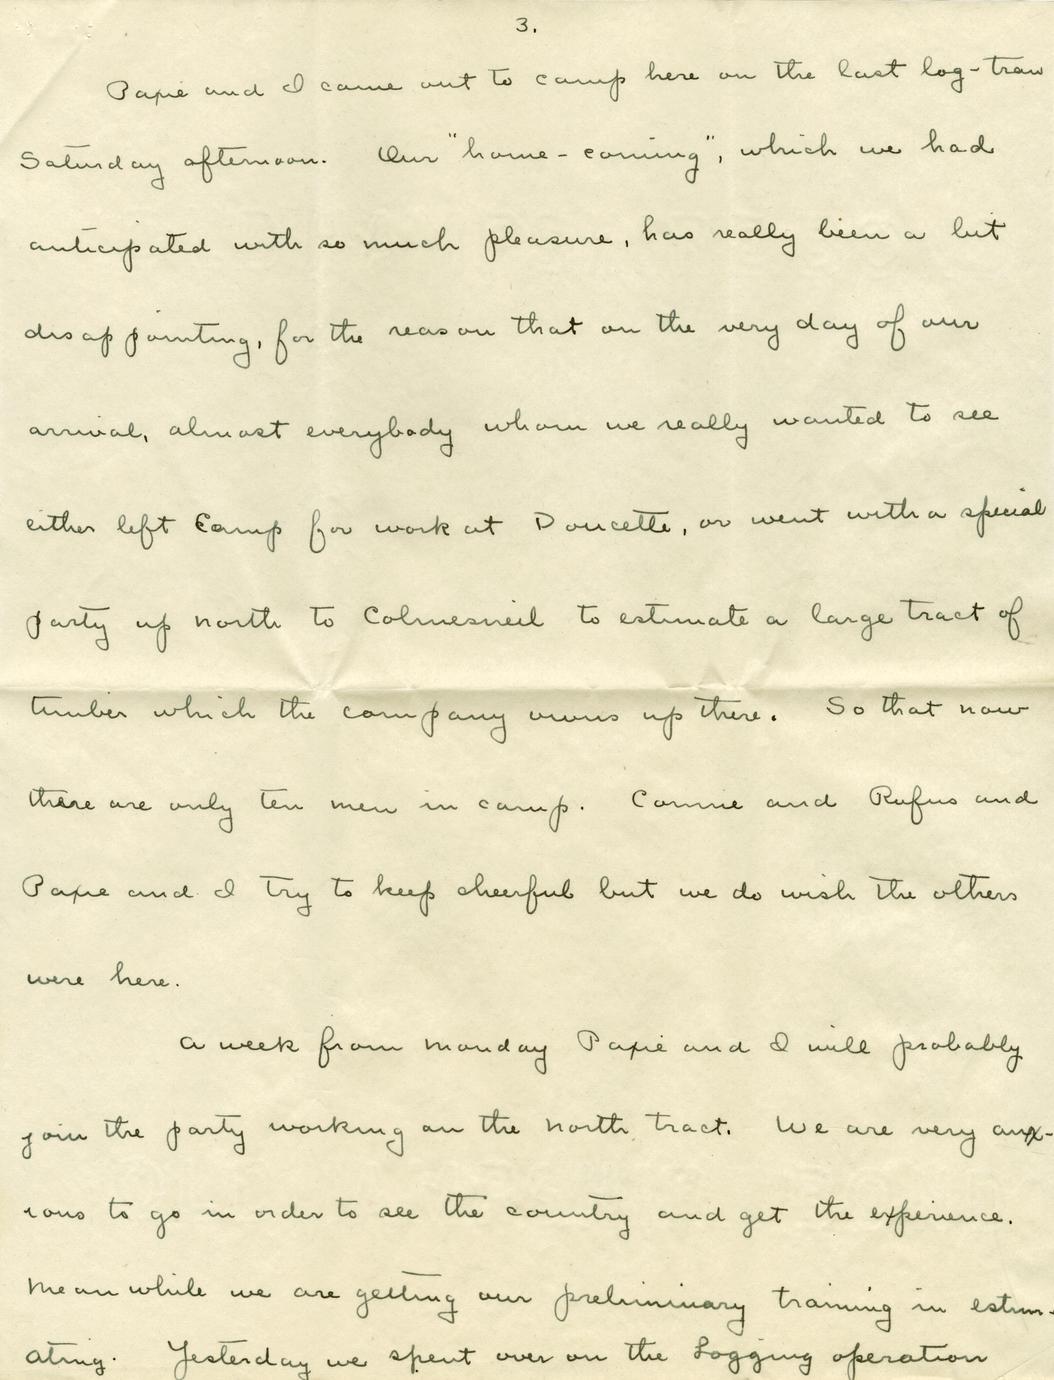 3.
Paxie and I came out to camp here on the last log-train
Saturday afternoon. Our "home-coming", which we had
anticipated with so much pleasure, has really been a bit
disappointing, for the reason that on the very day of our
arrival, almost everybody whom we really wanted to see
either left Camp for work at Doucette, or went with a special
party up north to Colmesneil to estimate a large tract of
timber which the company owns up there. So that now
there are only ten men in camp. Connie and Rufus and
Paxie and I try to keep cheerful but we do wish the others
were here.
A week from Monday Paxie and I will probably
join the party working on the north tract. We are very anx-
ious to go in order to see the country and get the experience.
Meanwhile we are getting our preliminary training in estim-
ating. Yesterday we spent over on the Logging operation